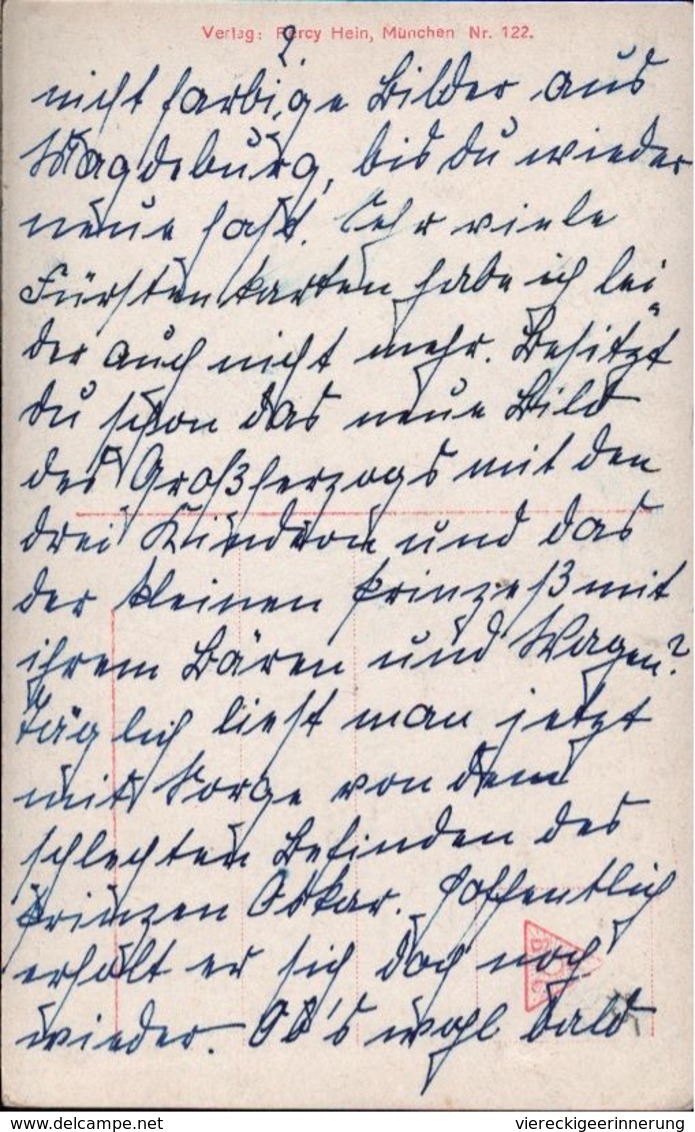 Verlag: Percy Hein, München Nr. 122.
2
nicht farbige Bilder aus
Magdeburg, bis du wieder
neue hast. Sehr viele
Fürstenkarten habe ich lei
der auch nicht mehr. Besitzt
du schon das neue Bild
des Großherzogs mit den
drei Kindern und das
der kleinen Prinzeß mit
ihrem Bären und Wagen?
Täglich liest man jetzt
mit Sorge von dem
schlechten Befinden des
Prinzen Oskar. Hoffentlich
erholt er sich doch noch
wieder. Ob's wohl bald
delcampe.net
viereckigeerinnerung